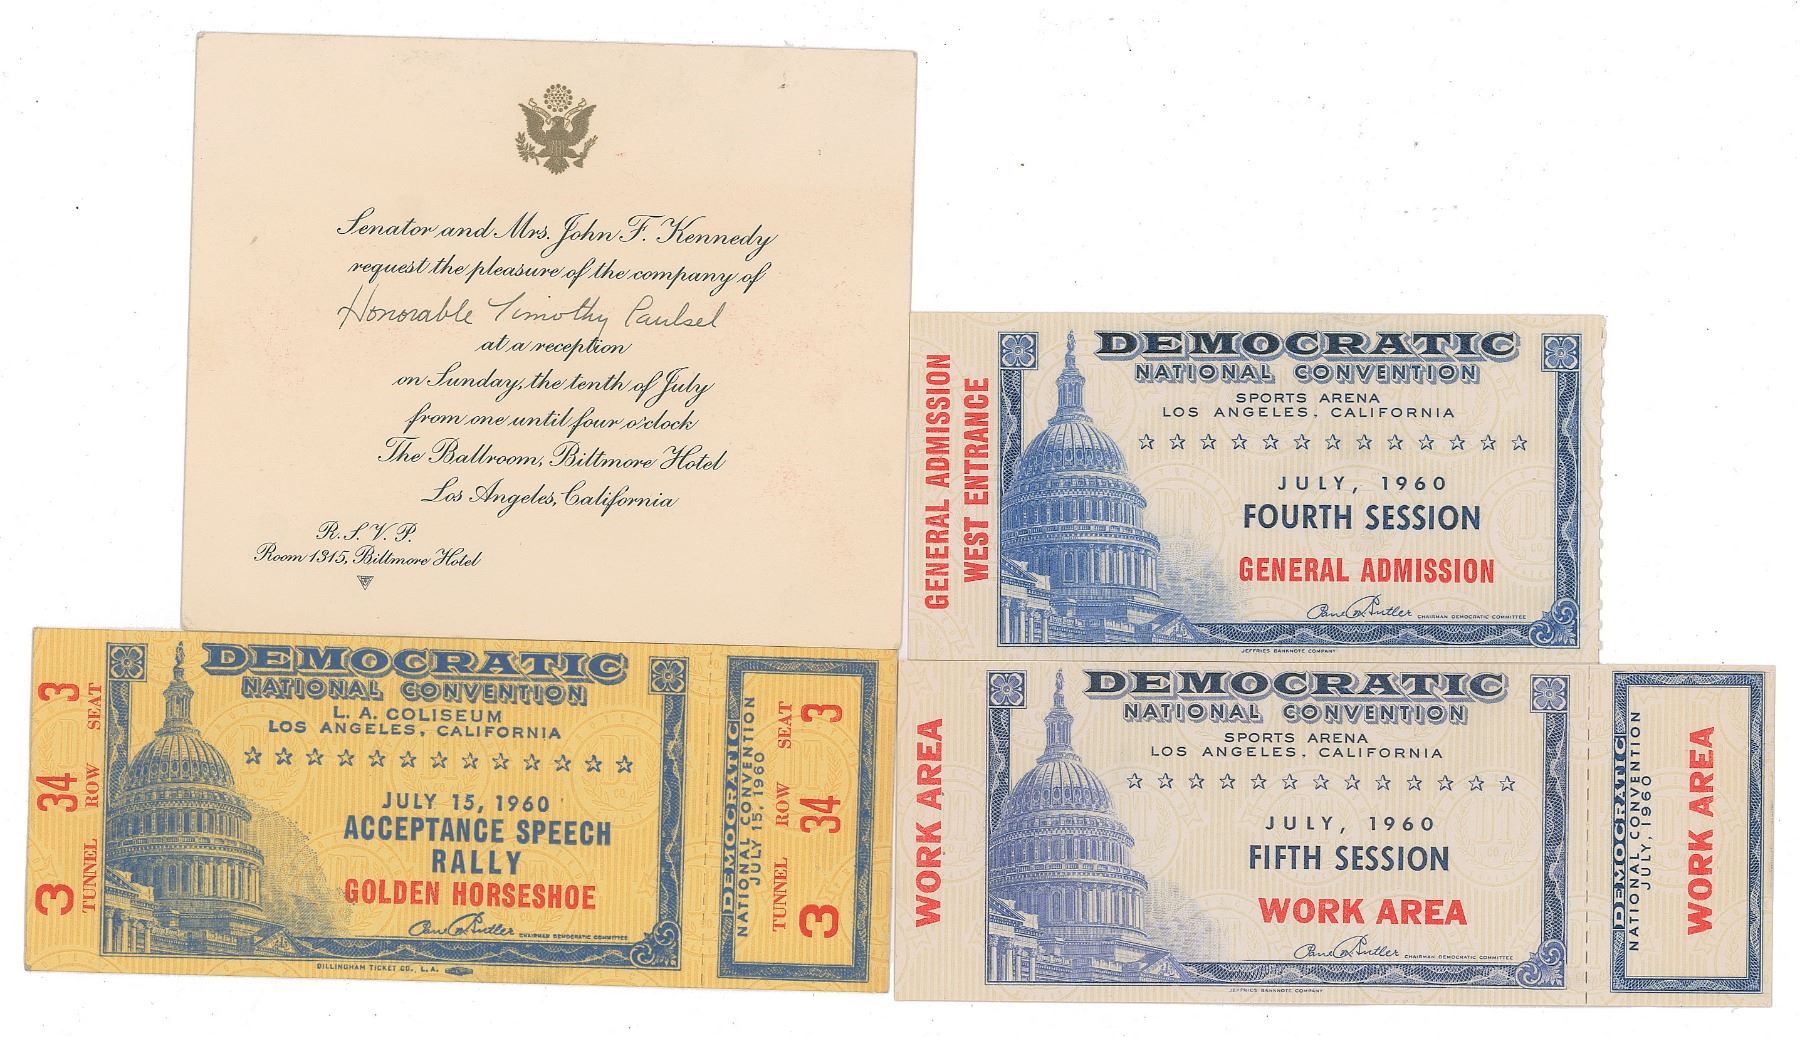 Senator and Mrs. John F. Kennedy
request the pleasure of the company of
Honorable Timothy Paulsel
at a reception
on Sunday, the tenth of July
from one until four o'clock
The Ballroom, Biltmore Hotel
Los Angeles, California
R.S.V.P.
Room 1315, Biltmore Hotel
GENERAL ADMISSION
WEST ENTRANCE
DEMOCRATIC
NATIONAL CONVENTION
SPORTS ARENA
LOS ANGELES, CALIFORNIA
JULY, 1960
FOURTH SESSION
GENERAL ADMISSION
Paul M. Butler CHAIRMAN DEMOCRATIC COMMITTEE
JEFFRIES BANKNOTE COMPANY
3 34 3
TUNNEL ROW SEAT
DEMOCRATIC
NATIONAL CONVENTION
L. A. COLISEUM
LOS ANGELES, CALIFORNIA
JULY 15, 1960
ACCEPTANCE SPEECH
RALLY
GOLDEN HORSESHOE
Paul M. Butler CHAIRMAN DEMOCRATIC COMMITTEE
DILLINGHAM TICKET CO., L.A.
DEMOCRATIC
NATIONAL CONVENTION
JULY 15, 1960
TUNNEL ROW SEAT
3 34 3
WORK AREA
DEMOCRATIC
NATIONAL CONVENTION
SPORTS ARENA
LOS ANGELES, CALIFORNIA
JULY, 1960
FIFTH SESSION
WORK AREA
Paul M. Butler CHAIRMAN DEMOCRATIC COMMITTEE
JEFFRIES BANKNOTE COMPANY
DEMOCRATIC
NATIONAL CONVENTION
JULY, 1960
WORK AREA